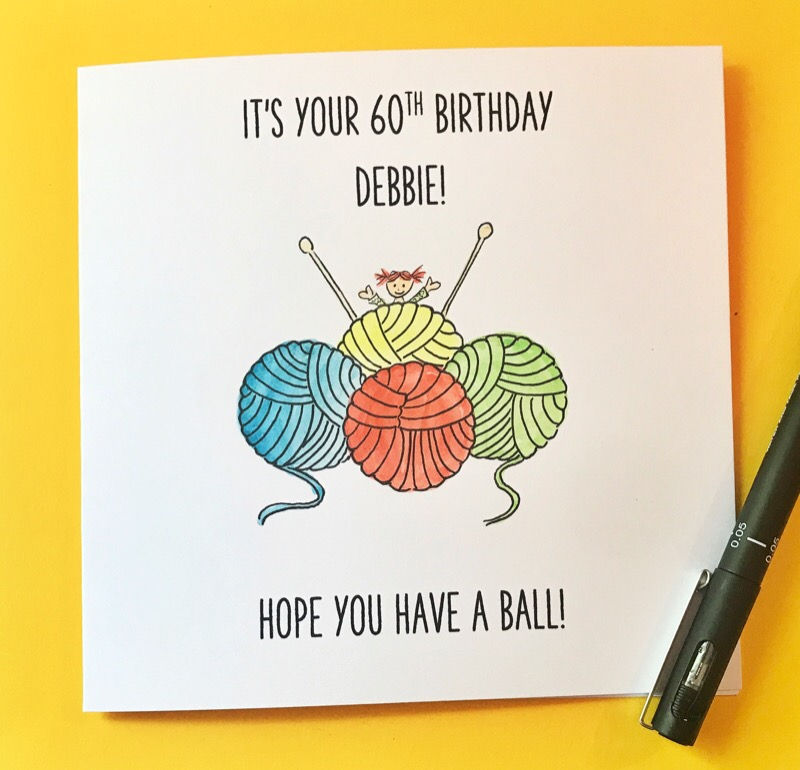 IT'S YOUR 60TH BIRTHDAY
DEBBIE!
HOPE YOU HAVE A BALL!
0.05
0.05